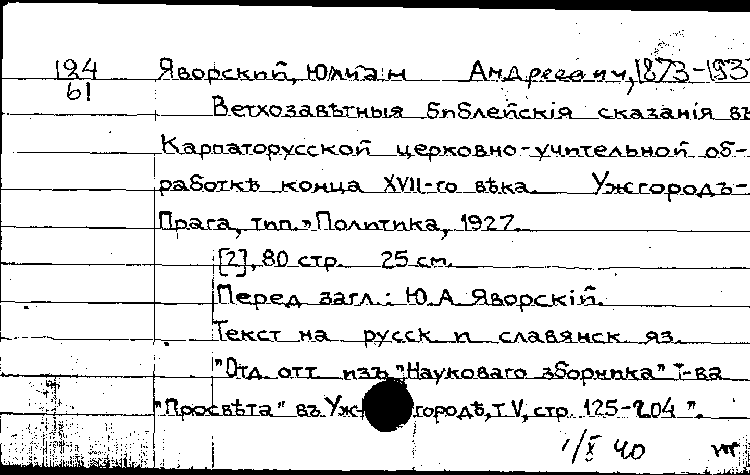 124 Яворский, Юлиан Андреевич, 1873-193
61
Ветхозавѣтныя библейскія сказанія въ
Карпаторусской церковно-учительной об-
работкѣ конца XVII-го вѣка. Ужгородъ-
Прага, тип. "Политика, 1927.
[2], 80 стр. 25 см.
Перед загл.: Ю.А Яворскій.
Текст на русск и славянск яз.
"Отд. отт изъ "Науковаго зборника" т-ва
"Просвѣта" въ Уж-городѣ, т V, стр. 125-204".
1/X 40